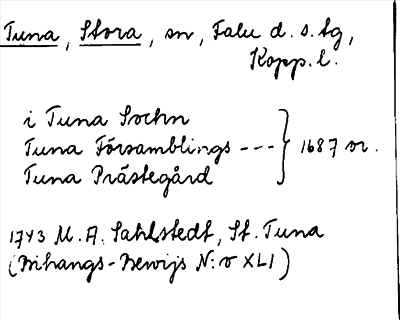 Tuna, Stora, sn, Falu d. s. tg,
Kopp. l.
i Tuna Sochn
Tuna Församblings --- } 1687 or.
Tuna Prästegård
1743 M. A. Sahlstedt, St. Tuna
(Bihangs-Bewijs N:o XLI)